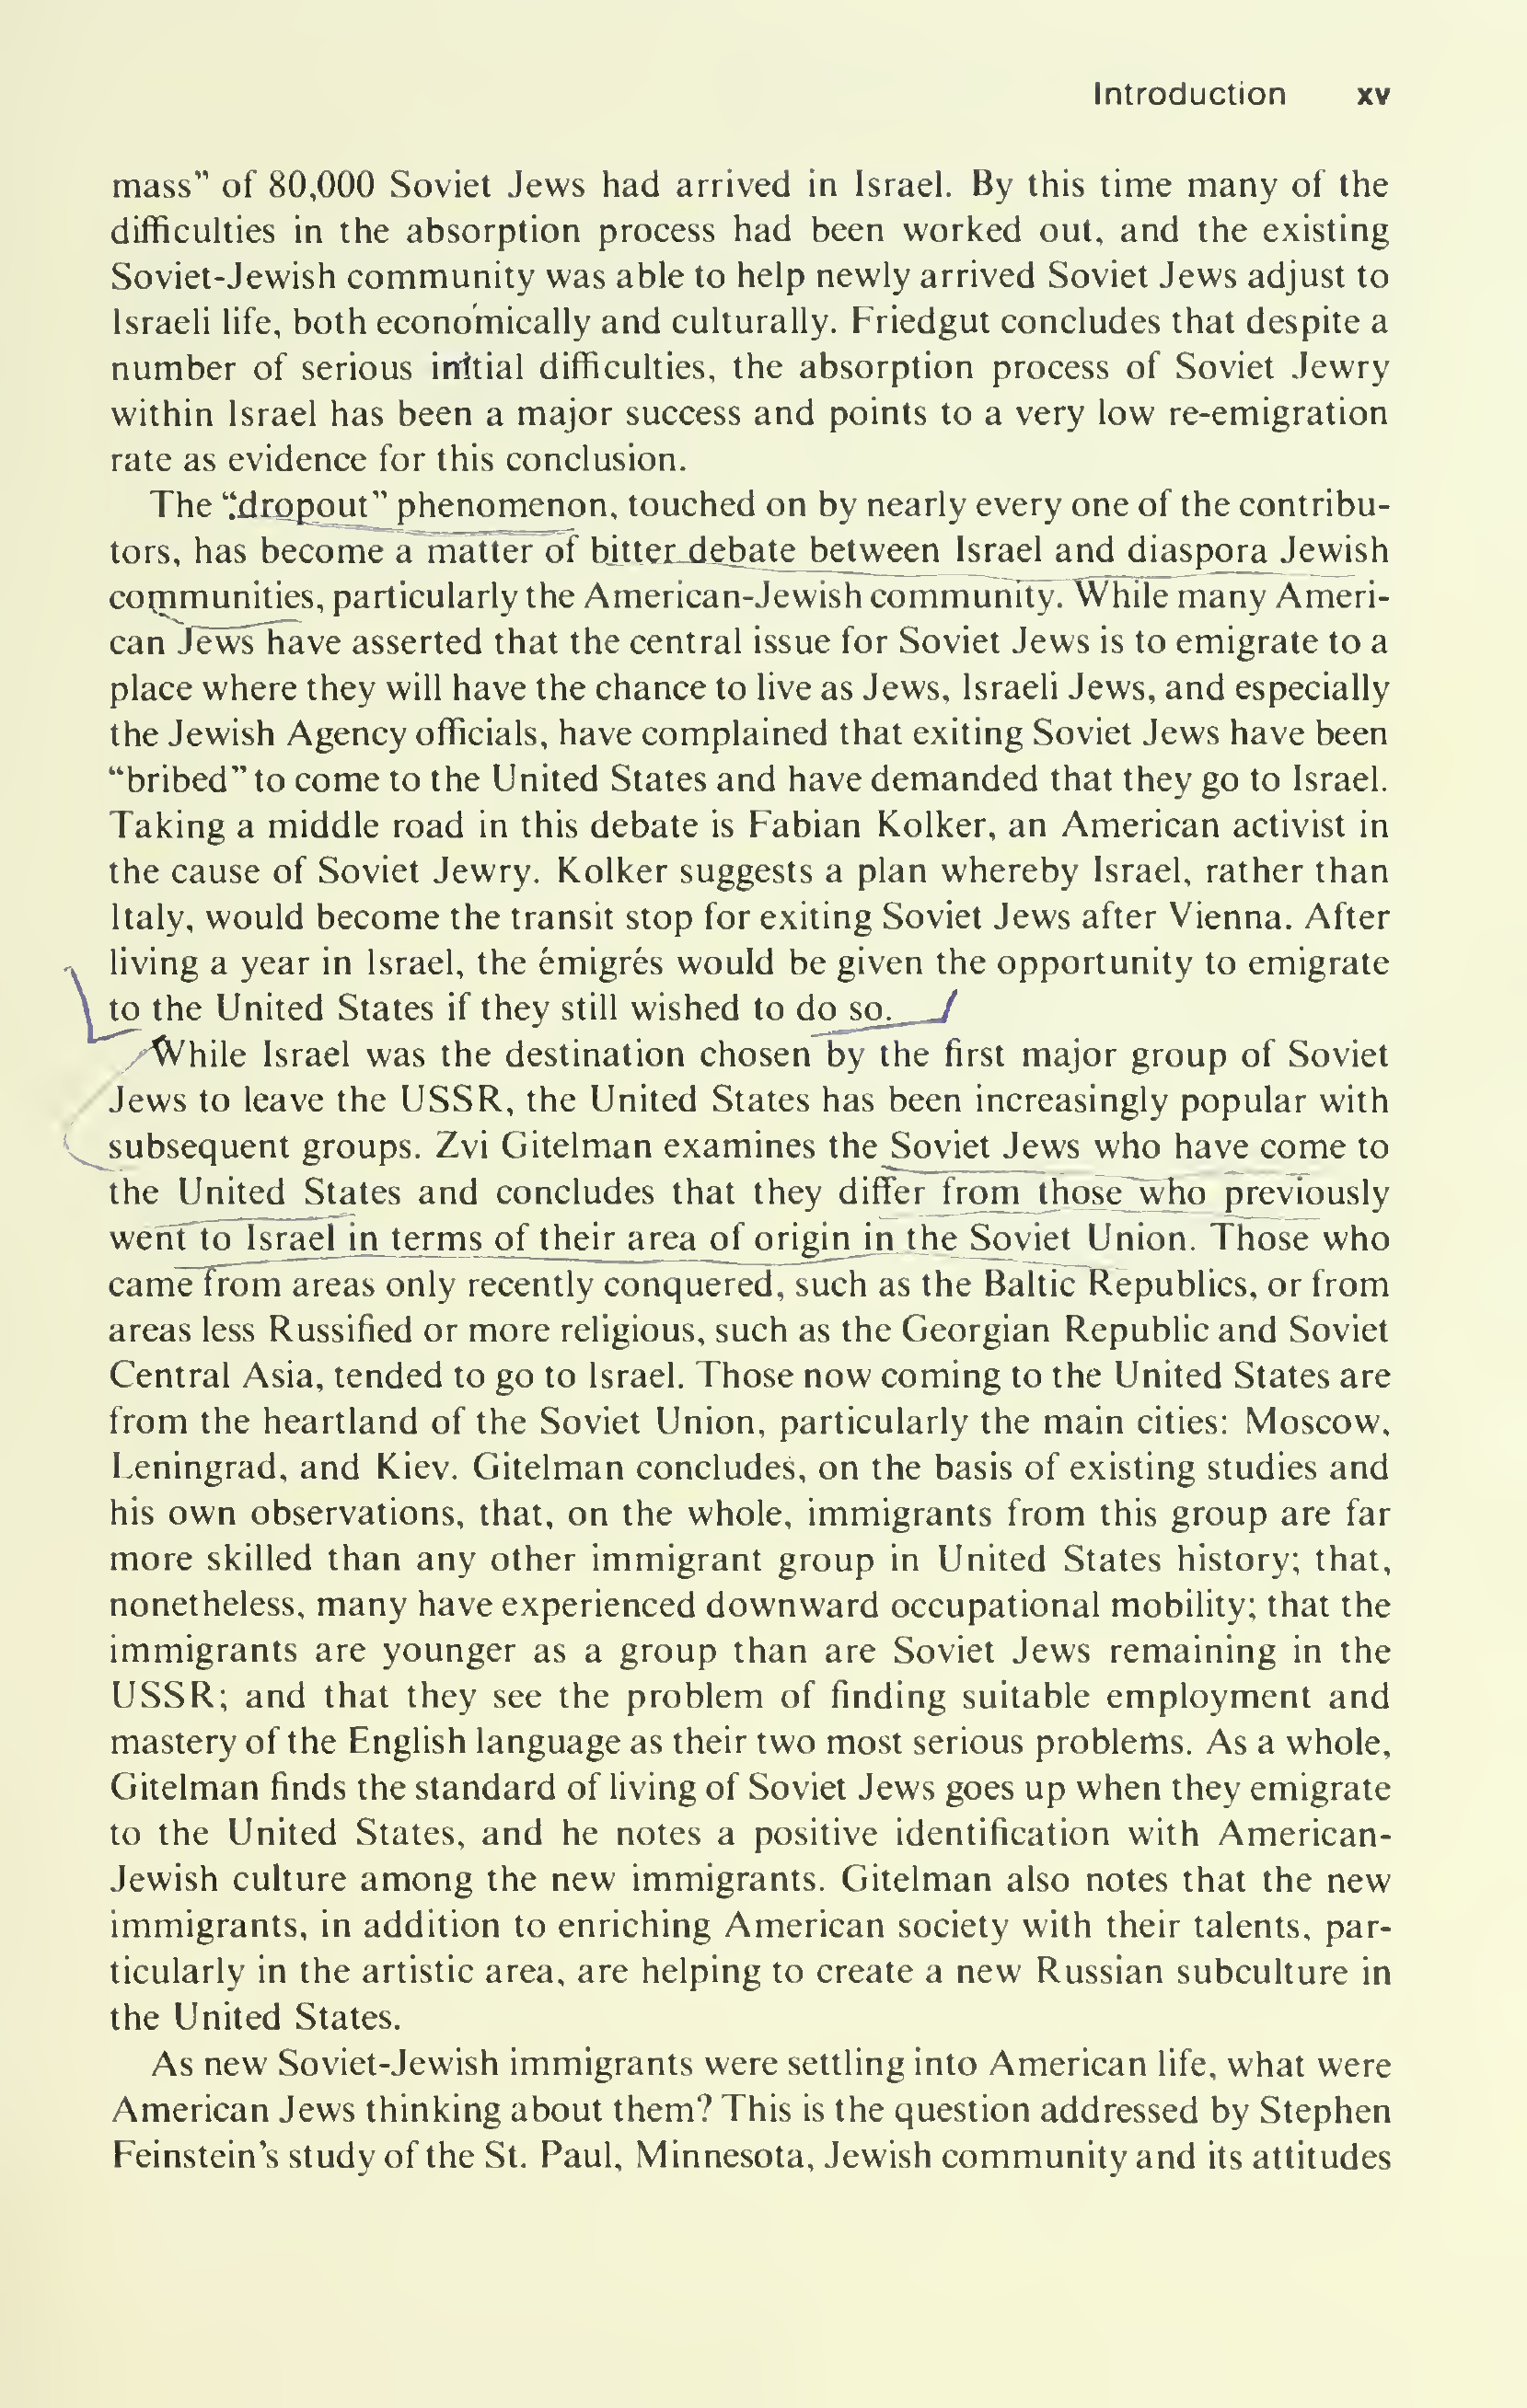 Introduction xv
mass" of 80,000 Soviet Jews had arrived in Israel. By this time many of the
difficulties in the absorption process had been worked out, and the existing
Soviet-Jewish community was able to help newly arrived Soviet Jews adjust to
Israeli life, both economically and culturally. Friedgut concludes that despite a
number of serious initial difficulties, the absorption process of Soviet Jewry
within Israel has been a major success and points to a very low re-emigration
rate as evidence for this conclusion.
The "dropout" phenomenon, touched on by nearly every one of the contribu-
tors, has become a matter of bitter debate between Israel and diaspora Jewish
communities, particularly the American-Jewish community. While many Ameri-
can Jews have asserted that the central issue for Soviet Jews is to emigrate to a
place where they will have the chance to live as Jews, Israeli Jews, and especially
the Jewish Agency officials, have complained that exiting Soviet Jews have been
"bribed" to come to the United States and have demanded that they go to Israel.
Taking a middle road in this debate is Fabian Kolker, an American activist in
the cause of Soviet Jewry. Kolker suggests a plan whereby Israel, rather than
Italy, would become the transit stop for exiting Soviet Jews after Vienna. After
living a year in Israel, the émigrés would be given the opportunity to emigrate
to the United States if they still wished to do so.
While Israel was the destination chosen by the first major group of Soviet
Jews to leave the USSR, the United States has been increasingly popular with
subsequent groups. Zvi Gitelman examines the Soviet Jews who have come to
the United States and concludes that they differ from those who previously
went to Israel in terms of their area of origin in the Soviet Union. Those who
came from areas only recently conquered, such as the Baltic Republics, or from
areas less Russified or more religious, such as the Georgian Republic and Soviet
Central Asia, tended to go to Israel. Those now coming to the United States are
from the heartland of the Soviet Union, particularly the main cities: Moscow,
Leningrad, and Kiev. Gitelman concludes, on the basis of existing studies and
his own observations, that, on the whole, immigrants from this group are far
more skilled than any other immigrant group in United States history; that,
nonetheless, many have experienced downward occupational mobility; that the
immigrants are younger as a group than are Soviet Jews remaining in the
USSR; and that they see the problem of finding suitable employment and
mastery of the English language as their two most serious problems. As a whole,
Gitelman finds the standard of living of Soviet Jews goes up when they emigrate
to the United States, and he notes a positive identification with American-
Jewish culture among the new immigrants. Gitelman also notes that the new
immigrants, in addition to enriching American society with their talents, par-
ticularly in the artistic area, are helping to create a new Russian subculture in
the United States.
As new Soviet-Jewish immigrants were settling into American life, what were
American Jews thinking about them? This is the question addressed by Stephen
Feinstein's study of the St. Paul, Minnesota, Jewish community and its attitudes